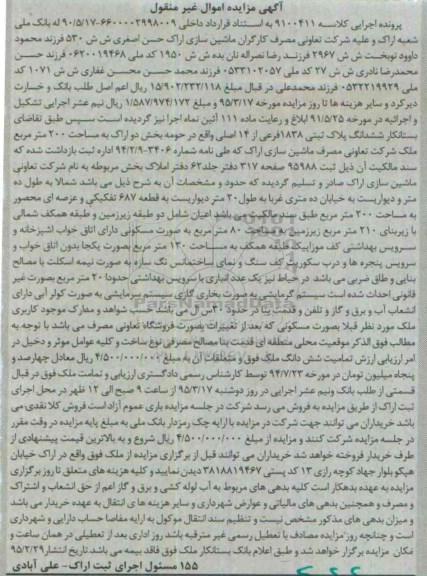 آگهی مزایده اموال غیر منقول
پرونده اجرایی کلاسه ۹۱۰۰۴۱۱ به استناد قرارداد داخلی ۶۶۰۰۰۰۲۹۹۸۰۰۹-۹۰/۵/۱۷ له بانک ملی
شعبه اراک و علیه شرکت تعاونی مصرف کارگران ماشین سازی اراک حسن اصغری ش ش ۵۳۰ فرزند محمود
داوود نوبخت ش ش ۲۹۶۷ فرزند رضا نصراله نان بده ش ش ۱۹۵۰ کد ملی ۰۶۲۰۰۱۹۴۶۸ فرزند حسن
محمدرضا نادری ش ش ۲۷ کد ملی ۰۵۳۳۱۰۲۰۵۷ فرزند محمد حسن محسن غفاری ش ش ۱۰۷۱ کد
ملی ۰۵۳۲۲۱۹۹۲۹ فرزند محمدعلی در قبال مبلغ ۱۵/۹۰۲/۲۳۲/۱۱۸ ریال اعم اصل طلب بانک و خسارت
دیرکرد و سایر هزینه ها تا روز مزایده مورخه ۹۵/۳/۱۷ و مبلغ ۱/۵۸۷/۹۷۴/۱۷۲ ریال نیم عشر اجرایی تشکیل
و اجرائیه در مورخه ۹۱/۵/۲۵ ابلاغ و رعایت ماده ۱۱۱ آئین نماه اجرا نیز گردیده است سپس طبق تقاضای
بستانکار ششدانگ پلاک ثبتی ۱۸۳۸فرعی از ۱۴ اصلی واقع در حومه بخش دو اراک به مساحت ۲۰۰ متر مربع
ملک شرکت تعاونی مصرف ماشین سازی اراک که طی نامه شماره ۳۴۰۶-۹۴/۲/۹ اداره ثبت بازداشت شده که
سند مالکیت آن ذیل ثبت ۹۵۹۸۸ صفحه ۳۱۷ دفتر جلد۶۲ دفتر املاک بخش مربوطه به نام شرکت تعاونی
ماشین سازی اراک صادر و تسلیم گردیده که حدود و مشخصات آن به شرح ذیل می باشد شمالا به طول ده
متر و دیواریست به خیابان ده متری غربا به طول ۲۰ متر دیواریست به قطعه ۶۸۷ تفکیکی و عرصه ای محصور
به مساحت ۲۰۰ متر مربع طبق سند مالکیت می باشد اعیان شامل دو طبقه زیرزمین و طبقه همکف شمالی
با زیربنای ۲۱۰ متر مربع زیرزمین به مساحت ۸۰ متر مربع به صورت مسکونی دارای اتاق خواب اشپزخانه و
سرویس بهداشتی کف موزاییک طبقه همکف به مساحت ۱۳۰ متر مربع بصورت یکجا بدون اتاق خواب و
سرویس پنجره ها و درب سکوریت کف سنگ و نمای ساختمانس تگ سازه به صورت نیمه اسکلت با مصالح
بنایی و طاق ضربی می باشد. در حیاط نیز یک عدد انباری با سرویس بهداشتی حدودا ۲۰ متر مربع بصورت غیر
قانونی احداث شده است سیستم گرمایشی به صورت بخاری گازی سیستم سرمایشی به صورت کولر آبی دارای
انشعاب آب و برق و گاز و تلفن و قدمت بنا در حدود ۴۰س ل می باشد حسب شواهد و مدارک موجود کاربری
ملک مورد نظر قبلا بصورت مسکونی که بعد از تغییرات بصورت فروشگاه تعاونی مصرف می باشد با توجه به
مطالب فوق الذکر موقعیت محلی منطقه ای قدمت بنا مصالح مصرفی نوع ساخت و کلیه عوامل موثر و دخیل در
امر ارزیابی ارزش تمامیت شش دانگ ملک فوق و متعلقات آن به مبلغ ۴/۵۰۰/۰۰۰/۰۰۰ ریال معادل چهارصد و
پنجاه میلیون تومان در مورخه ۹۴/۷/۲۳ توسط کارشناس رسمی دادگستری ارزیابی و تمامت ملک فوق در قبال
قسمتی از طلب بانک ونیم عشر اجرایی در روز دوشنبه ۹۵/۳/۱۷ از ساعت ۹ صبح الی ۱۲ ظهر در محل اجرای
ثبت اراک از طریق مزایده به فروش می رسد شرکت در جلسه مزایده باری عموم آزاد است فروش کلا نقدی می
باشد خریداران می توانند جهت شرکت در مزایده با ارایه چک رمزدار بانک ملی به مبلغ پایه مزایده در وقت مقرر
در جلسه مزایده شرکت کنند و مزایده از مبلغ ۴/۵۰۰/۰۰۰/۰۰۰ ریال شروع و به بالاترین قیمت پیشنهادی از
طرف خریدار فروخته خواهد شد خریداران می توانند قبل از برگزاری مزایده از ملک فوق واقع در اراک خیابان
هپکو بلوار جهاد کوچه رازی ۱۳ کد پستی ۳۸۱۸۸۱۹۴۶۷ دیدن نمایید و کلیه هزینه های متعلق تا روز برگزاری
مزایده به عهده بدهکار است کلیه بدهی های مربوط به آب لوله کشی و برق و گاز اعم از حق انشعاب و اشتراک
و مصرف و همچنین بدهی های مالیاتی و عوارض شهرداری و سایر هزینه ها ی انتقال به عهده خریدار می باشد
و میزان بدهی های مذکور مشخص نیست و تنظیم سند انتقال موکول به ارایه مفاصا حساب دارایی و شهرداری
است و چنانچه روز مزایده مصادف با تعطیل رسمی غیر مترقبه باشد روز اداری بعد از تعطیلی در همان ساعت و
مکان مزایده برگزار خواهد شد و طبق اعلام بانک بستانکار ملک فوق فاقد بیمه می باشد تاریخ انتشار ۹۵/۲/۲۹
۱۵۵ مسئول اجرای ثبت اراک- علی آبادی